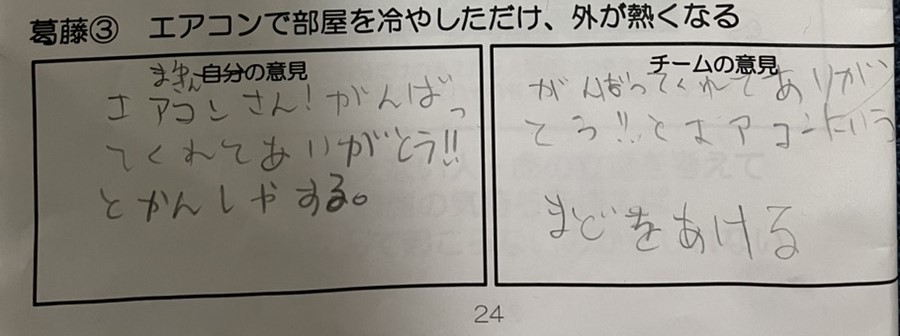 葛藤③ エアコンで部屋を冷やしただけ、外が熱くなる
自分の意見
エアコンさん!がんばっ
てくれてありがとう!!
とかんしゃする。
チームの意見
がんばってくれてありがと
てう!!とエアコンにいう
まどをあける
24